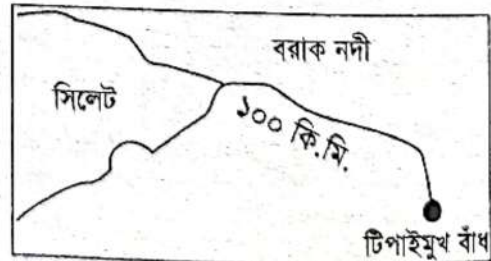 বরাক নদী
সিলেট
১০০ কি.মি.
টিপাইমুখ বাঁধ